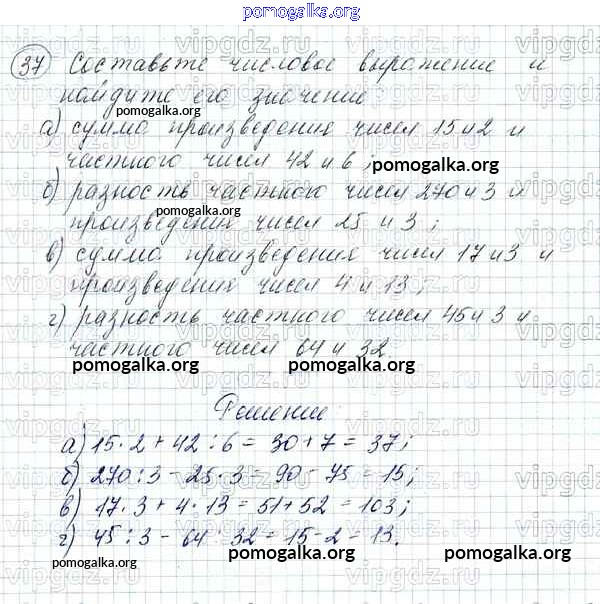 pomogalka.org
37 Составьте числовое выражение и
найдите его значение:
а) сумма произведения чисел 15 и 2 и
частного чисел 42 и 6;
pomogalka.org
б) разность частного чисел 270 и 3 и
pomogalka.org
произведения чисел 25 и 3;
в) сумма произведения чисел 17 и 3 и
pomogalka.org
произведения чисел 4 и 13;
pomogalka.org
г) разность частного чисел 45 и 3 и
частного чисел 64 и 32
pomogalka.org pomogalka.org
Решение:
а) 15 · 2 + 42 : 6 = 30 + 7 = 37;
б) 270 : 3 - 25 · 3 = 90 - 75 = 15;
в) 17 · 3 + 4 · 13 = 51 + 52 = 103;
г) 45 : 3 - 64 : 32 = 15 - 2 = 13.
pomogalka.org pomogalka.org